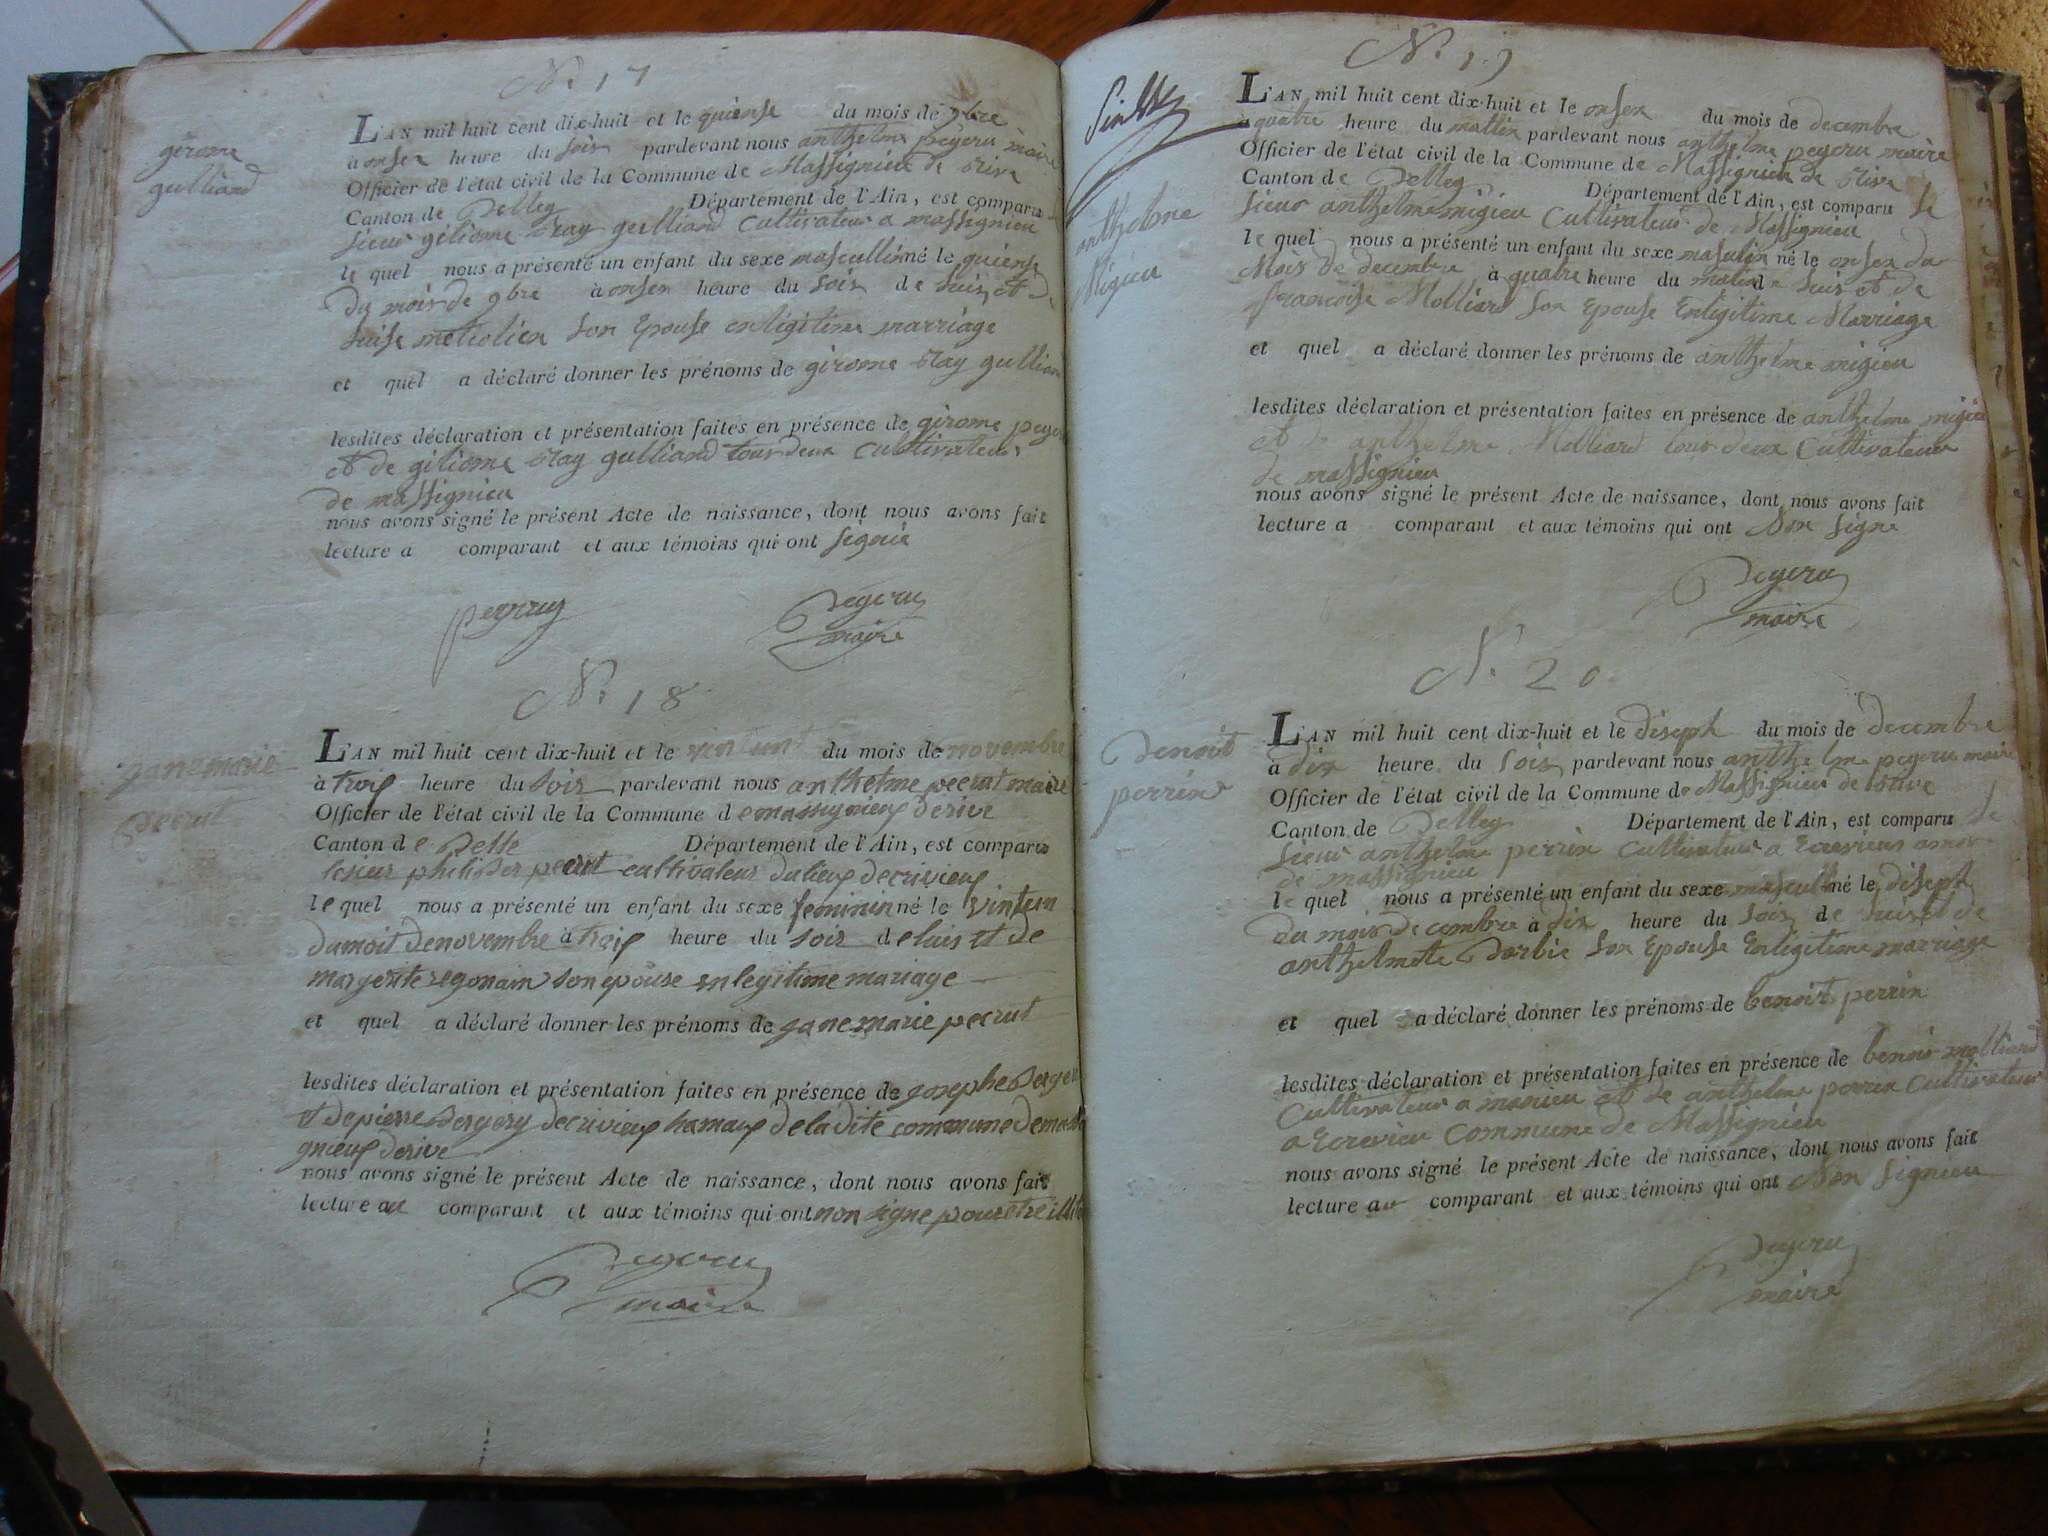 N. 17
girome
gulliand
L'AN mil huit cent dix-huit et le quiense du mois de 9bre
à onser heure du soir pardevant nous anthelme peycru maire
Officier de l'état civil de la Commune de Massignieu de Rive
Canton de Belley Département de l'Ain, est comparu
sieur giliome Ray gulliand Cultivateur a massignieu
le quel nous a présenté un enfant du sexe mascullin né le quiense
du mois de 9bre à onser heure du soir de luis et de
son Epouse enligitime marriage
et quel a déclaré donner les prénoms de girome Ray gullian
lesdites déclaration et présentation faites en présence de girome
et de giliome Ray gulliand tous deux cultivateur
de massignieu
nous avons signé le présent Acte de naissance, dont nous avons fait
lecture a comparant et aux témoins qui ont signié
peycru
maire
N. 18
jane marie
pecrut
L'AN mil huit cent dix-huit et le vintunt du mois de novembre
à trois heure du soir pardevant nous anthelme pecrut maire
Officier de l'état civil de la Commune de massignieux derive
Canton de Belle Département de l'Ain, est comparu
lesieur philiber pecrut cultivateur dulieux decrivieux
le quel nous a présenté un enfant du sexe feminin né le vinteun
dumoit denovembre à trois heure du soir de luis et de
margerite regonain son epouse en legitime mariage
et quel a déclaré donner les prénoms de jane marie pecrut
lesdites déclaration et présentation faites en présence de josephe Berger
et depierre Bergery decrivieux hamaux deladite commune demassi
gnieux derive
nous avons signé le présent Acte de naissance, dont nous avons fait
lecture au comparant et aux témoins qui ont non signe pouretre illite
peycru
maire
N. 19
anthelme
Migieu
L'AN mil huit cent dix-huit et le onser du mois de decembre
à quatre heure du mattin pardevant nous anthelme peycru maire
Officier de l'état civil de la Commune de Massignieu de Rive
Canton de Belley Département de l'Ain, est comparu le
sieur anthelme migieu Cultivateur de Massignieu
le quel nous a présenté un enfant du sexe masculin né le onser du
Mois de decembre à quatre heure du matin de luis et de
francoise Molliard son Epouse Enligitime Marriage
et quel a déclaré donner les prénoms de anthelme migieu
lesdites déclaration et présentation faites en présence de anthelme migieu
et de anthelme Molliard tous deux Cultivateur
de massignieu
nous avons signé le présent Acte de naissance, dont nous avons fait
lecture a comparant et aux témoins qui ont Non signe
peycru
maire
N. 20
Benoit
perrin
L'AN mil huit cent dix-huit et le diseph du mois de decembre
à dix heure du soir pardevant nous anthelme peycru maire
Officier de l'état civil de la Commune de Massignieu de Rive
Canton de Belley Département de l'Ain, est comparu le
sieur anthelme perrin Cultivateur a Ecrevieux
de massignieu
le quel nous a présenté un enfant du sexe mascull né le diseph
du mois decembre à dix heure du soir de luis et de
anthelmete Barbie son Epouse Enligitime marriage
et quel a déclaré donner les prénoms de benoit perrin
lesdites déclaration et présentation faites en présence de benoit molliard
Cultivateur a et de anthelme perrin Cultivateur
a Ecrevieu Commune de Massignieu
nous avons signé le présent Acte de naissance, dont nous avons fait
lecture au comparant et aux témoins qui ont Non signieu
peycru
maire